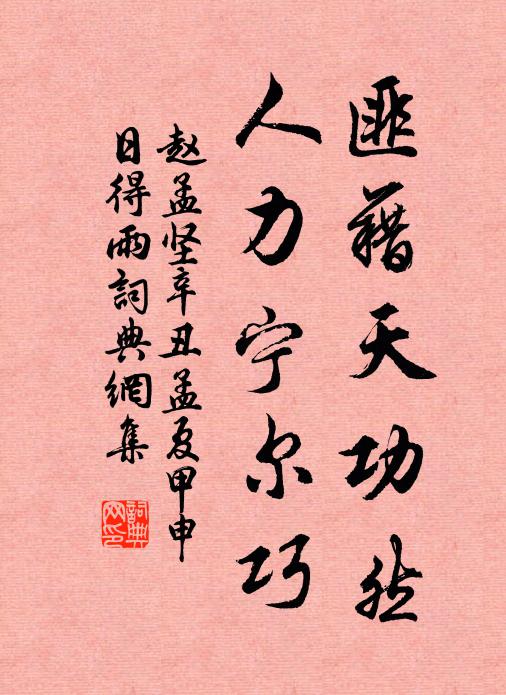 匪藉天功然
人力宁尔巧
赵孟坚辛丑孟夏甲申
日得雨詞典網集
詞典網印